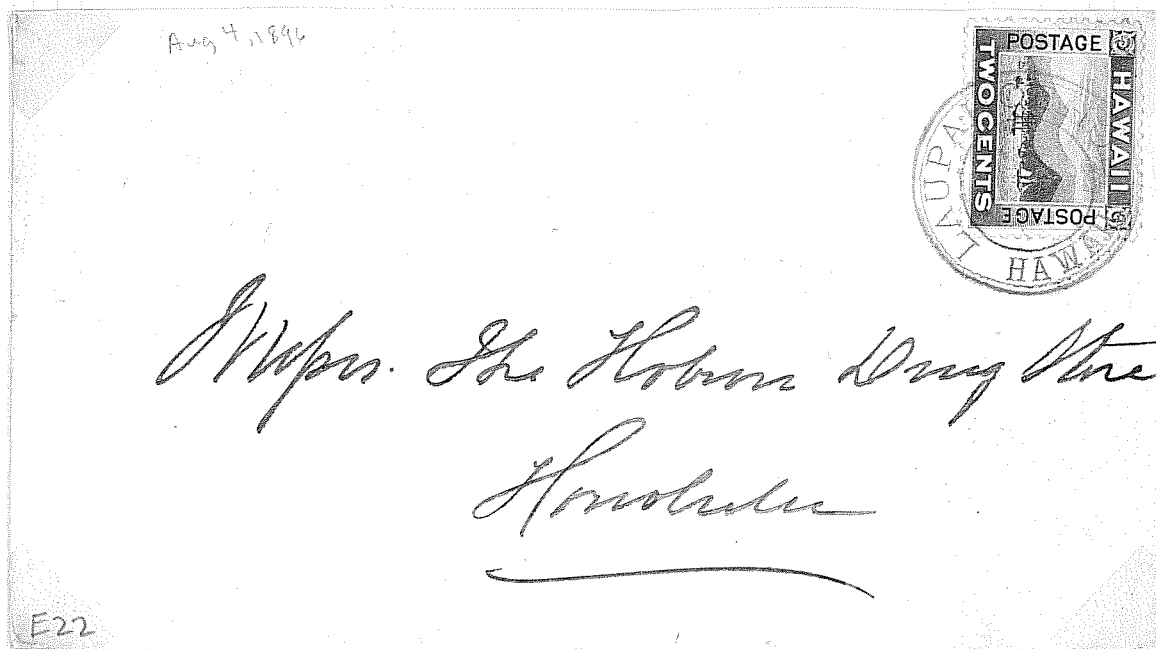 Aug 4, 1896
POSTAGE
HAWAII
TWO CENTS
POSTAGE
LAUPA
HAWAII
Messrs. The Hobron Drug Store
Honolulu
E22